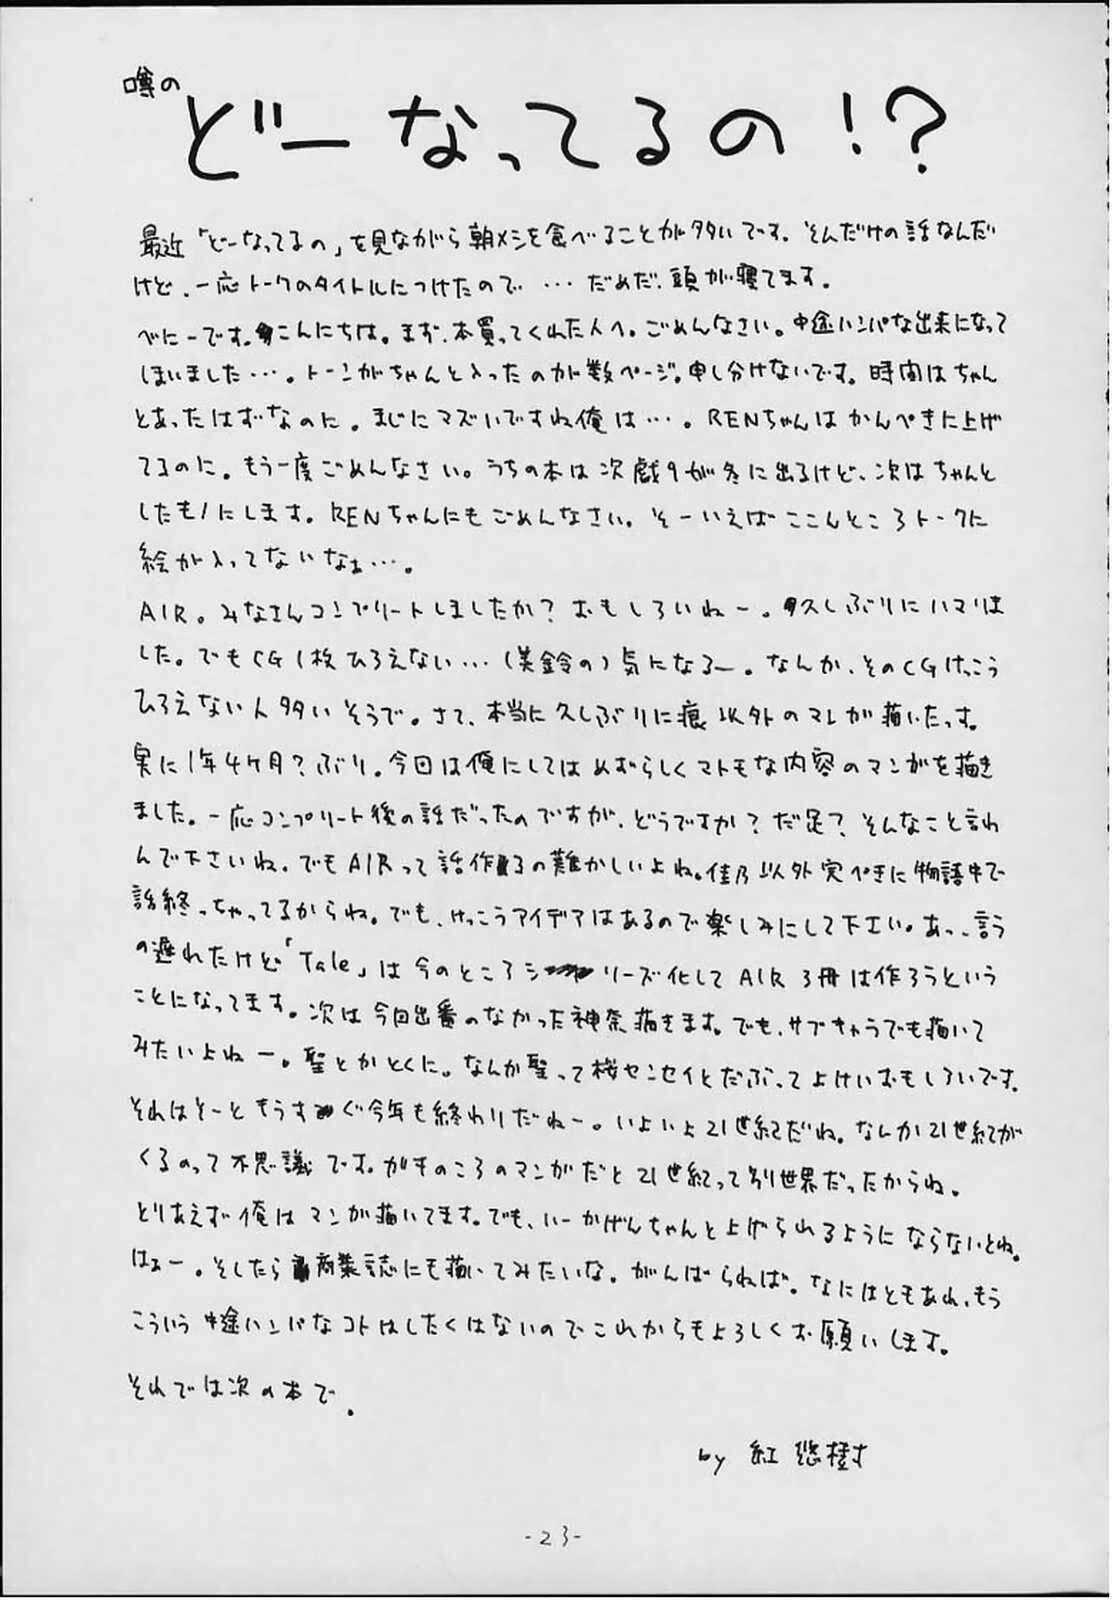 噂の
どーなってるの!?
最近「どーなってるの」を見ながら朝メシを食べることが多いです。そんだけの話なんだ
けど、一応トークのタイトルにつけたので…だめだ、頭が寝てます。
べにーです。こんにちは。まず、本買ってくれた人へ。ごめんなさい。中途ハンパな出来になって
しまいました…。トーンがちゃんと入ったのが数ページ。申し分けないです。時間はちゃん
とあったはずなのに。まじにマズいですね俺は…。RENちゃんはかんぺきに上げ
てるのに。もう一度ごめんなさい。うちの本は次戯9が冬に出るけど、次はちゃんと
したものにします。RENちゃんにもごめんなさい。そーいえばここんところトークに
絵が入ってないなぁ…。
AIR。みなさんコンプリートしましたか?おもしろいねー。久しぶりにハマりま
した。でもCG1枚ひろえない…(美鈴の)気になるー。なんか、そのCGけっこう
ひろえない人多いそうで。さて、本当に久しぶりに痕以外のマンガ描いたっす。
実に1年4ケ月?ぶり。今回は俺にしてはめずらしくマトモな内容のマンガを描き
ました。一応コンプリート後の話だったのですが、どうですか?だ足?そんなこと言わ
んで下さいね。でもAIRって話作るの難かしいよね。佳乃以外完ぺきに物語中で
話終っちゃってるからね。でも、けっこうアイデアはあるので楽しみにして下さい。あっ、言う
の遅れたけど「Tale」は今のところシリーズ化してAIR3冊は作ろうという
ことになってます。次は今回出番のなかった神奈描きます。でも、サブキャラでも描いて
みたいよねー。聖とかとくに。なんか聖って桜センセイとだぶってよけいおもしろいです。
それはそーともうすぐ今年も終わりだねー。いよいよ21世紀だね。なんか21世紀が
くるのって不思議です。ガキのころのマンガだと21世紀って別世界だったからね。
とりあえず俺はマンガ描いてます。でも、いーかげんちゃんと上げられるようにならないとね。
はぁー。そしたら商業誌にも描いてみたいな。がんばらねば。なにはともあれ、もう
こういう中途ハンパなコトはしたくはないのでこれからもよろしくお願いします。
それでは次の本で。
by 紅 悠樹
-23-